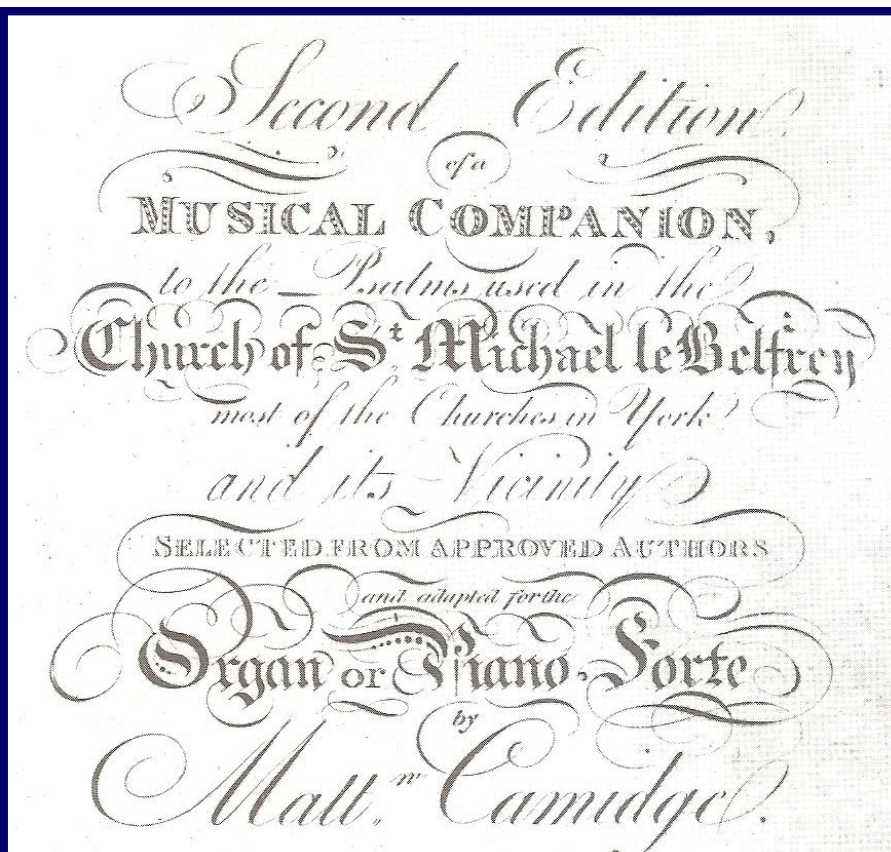 Second Edition
of a
MUSICAL COMPANION,
to the Psalms used in the
Church of St Michael le Belfrey
most of the Churches in York
and its Vicinity
SELECTED FROM APPROVED AUTHORS
and adapted for the
Organ or Piano-Forte
by
Matt.w Camidge.